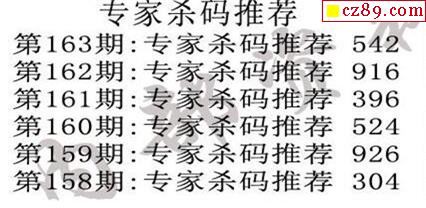 专家杀码推荐
cz89.com
第163期:专家杀码推荐 542
第162期:专家杀码推荐 916
第161期:专家杀码推荐 396
第160期:专家杀码推荐 524
第159期:专家杀码推荐 926
第158期:专家杀码推荐 304